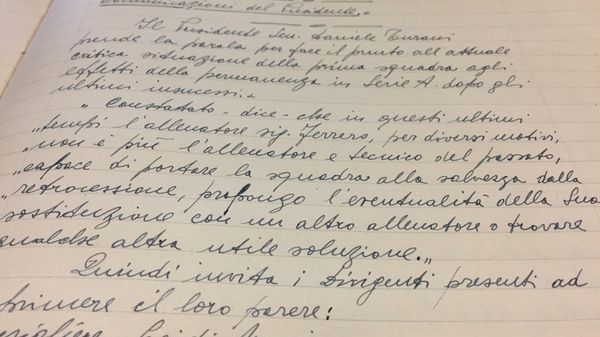 Comunicazioni del Presidente.-
Il Presidente Sen. Daniele Turani
prende la parola per fare il punto all'attuale
critica situazione della prima squadra agli
effetti della permanenza in Serie A. dopo gli
ultimi insuccessi.-
" Constatato - dice - che in questi ultimi
"tempi l'allenatore sig. Ferrero, per diversi motivi,
"non è più l'allenatore e tecnico del passato,
"capace di portare la squadra alla salvezza dalla
"retrocessione, propongo l'eventualità della Sua
sostituzione con un altro allenatore o trovare
qualche altra utile soluzione."
Quindi invita i Dirigenti presenti ad
primere il loro parere: